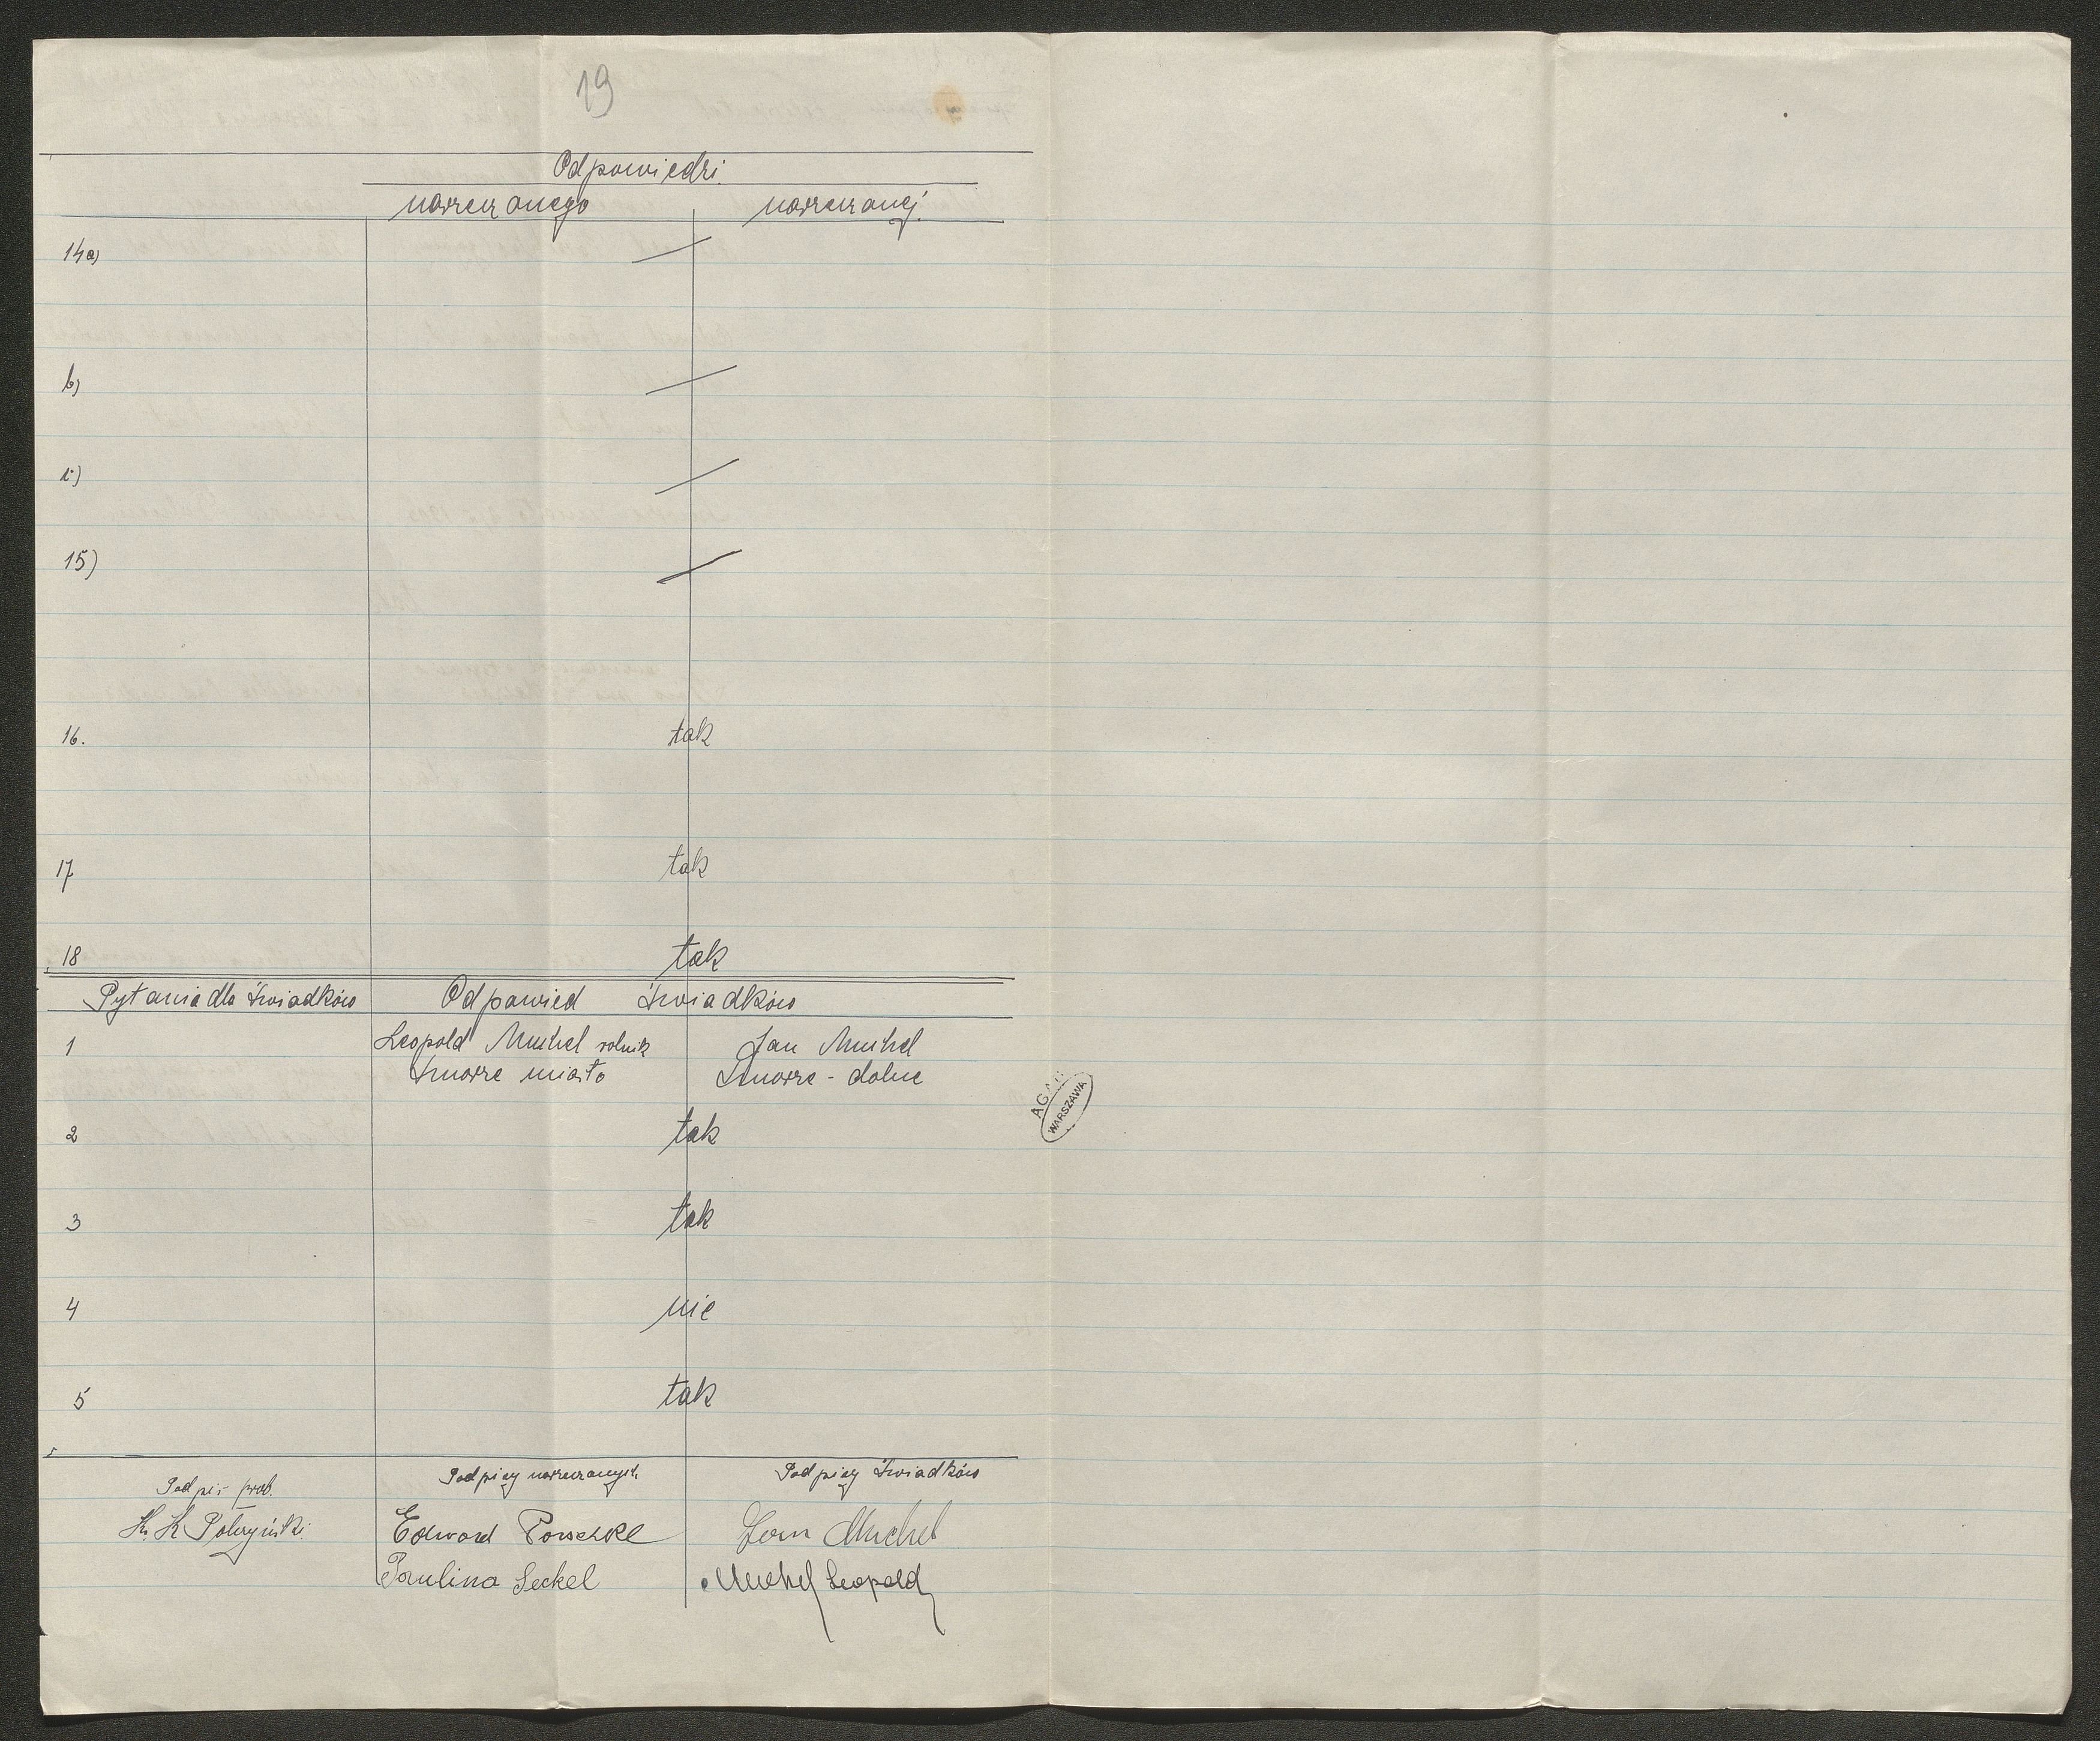 19
Odpowiedzi
narzeczonego narzeczonej
14a)
b)
c)
15)
16. tak
17 tak
18 tak
Pytania dla świadków Odpowied świadków
1 Leopold Muchel rolnik Jan Muchel
Smorze miasto Smorze - dolne
2 tak
3 tak
4 nie
5 tak
AGAD
WARSZAWA
Podpis prob. Podpisy narzeczonych Podpisy świadków
Ks. K Edward Porschke Jan Muchel
Paulina Seckel Muchel Leopold